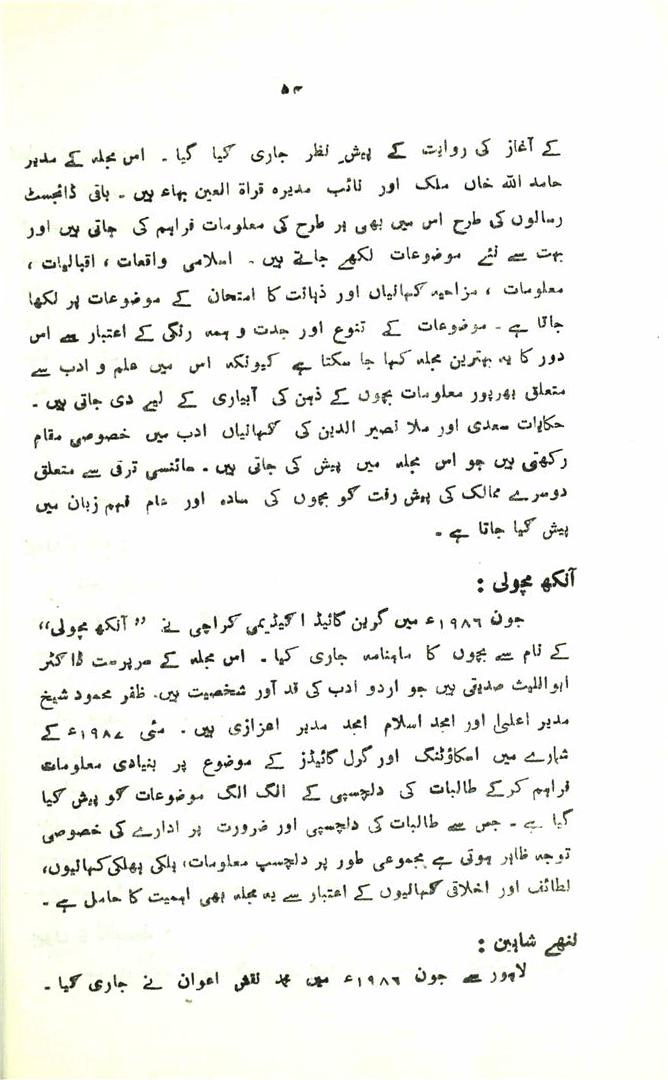 ۵۳
کے آغاز کی روایت کے پیش نظر جاری کیا گیا ۔ اس مجلہ کے مدیر
حامد اللہ خاں ملک اور نائب مدیرہ قراۃ العین بہاء ہیں ۔ باقی ڈائجسٹ
رسالوں کی طرح اس میں بھی ہر طرح کی معلومات فراہم کی جاتی ہیں اور
بہت سے نئے موضوعات لکھے جاتے ہیں ۔ اسلامی واقعات ، اقبالیات ،
معلومات ، مزاحیہ کہانیاں اور ذہانت کا امتحان کے موضوعات پر لکھا
جاتا ہے ۔ موضوعات کے تنوع اور جدت و ہمہ رنگی کے اعتبار سے اس
دور کا یہ بہترین مجلہ کہا جا سکتا ہے کیونکہ اس میں علم و ادب سے
متعلق بھرپور معلومات بچوں کے ذہن کی آبیاری کے لیے دی جاتی ہیں ۔
حکایات سعدی اور ملا نصیر الدین کی کہانیاں ادب میں خصوصی مقام
رکھتی ہیں جو اس مجلہ میں پیش کی جاتی ہیں ۔ سائنسی ترقی سے متعلق
دوسرے ممالک کی پیش رفت کو بچوں کی سادہ اور عام فہم زبان میں
پیش کیا جاتا ہے ۔
آنکھ مچولی :
جون ۱۹۸۶ء میں گرین گائیڈ اکیڈیمی کراچی نے ”آنکھ مچولی“
کے نام سے بچوں کا ماہنامہ جاری کیا ۔ اس مجلہ کے سرپرست ڈاکٹر
ابواللیث صدیقی ہیں جو اردو ادب کی قد آور شخصیت ہیں۔ ظفر محمود شیخ
مدیر اعلیٰ اور امجد اسلام امجد مدیر اعزازی ہیں ۔ مئی ۱۹۸۷ء کے
شمارے میں اسکاؤٹنگ اور گرل گائیڈز کے موضوع پر بنیادی معلومات
فراہم کرکے طالبات کی دلچسپی کے الگ الگ موضوعات کو پیش کیا
گیا ہے ۔ جس سے طالبات کی دلچسپی اور ضرورت پر ادارے کی خصوصی
توجہ ظاہر ہوتی ہے مجموعی طور پر دلچسپ معلومات، ہلکی پھلکی کہانیوں،
لطائف اور اخلاقی کہانیوں کے اعتبار سے یہ مجلہ بھی اہمیت کا حامل ہے ۔
ننھے شاہین :
لاہور سے جون ۱۹۸۶ء میں محمد نقش اعوان نے جاری کیا ۔